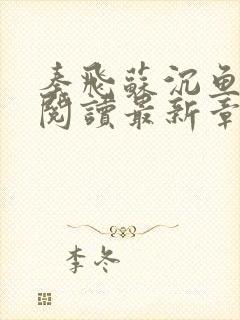 秦飛蘇沉魚
閱讀最新章
李冬